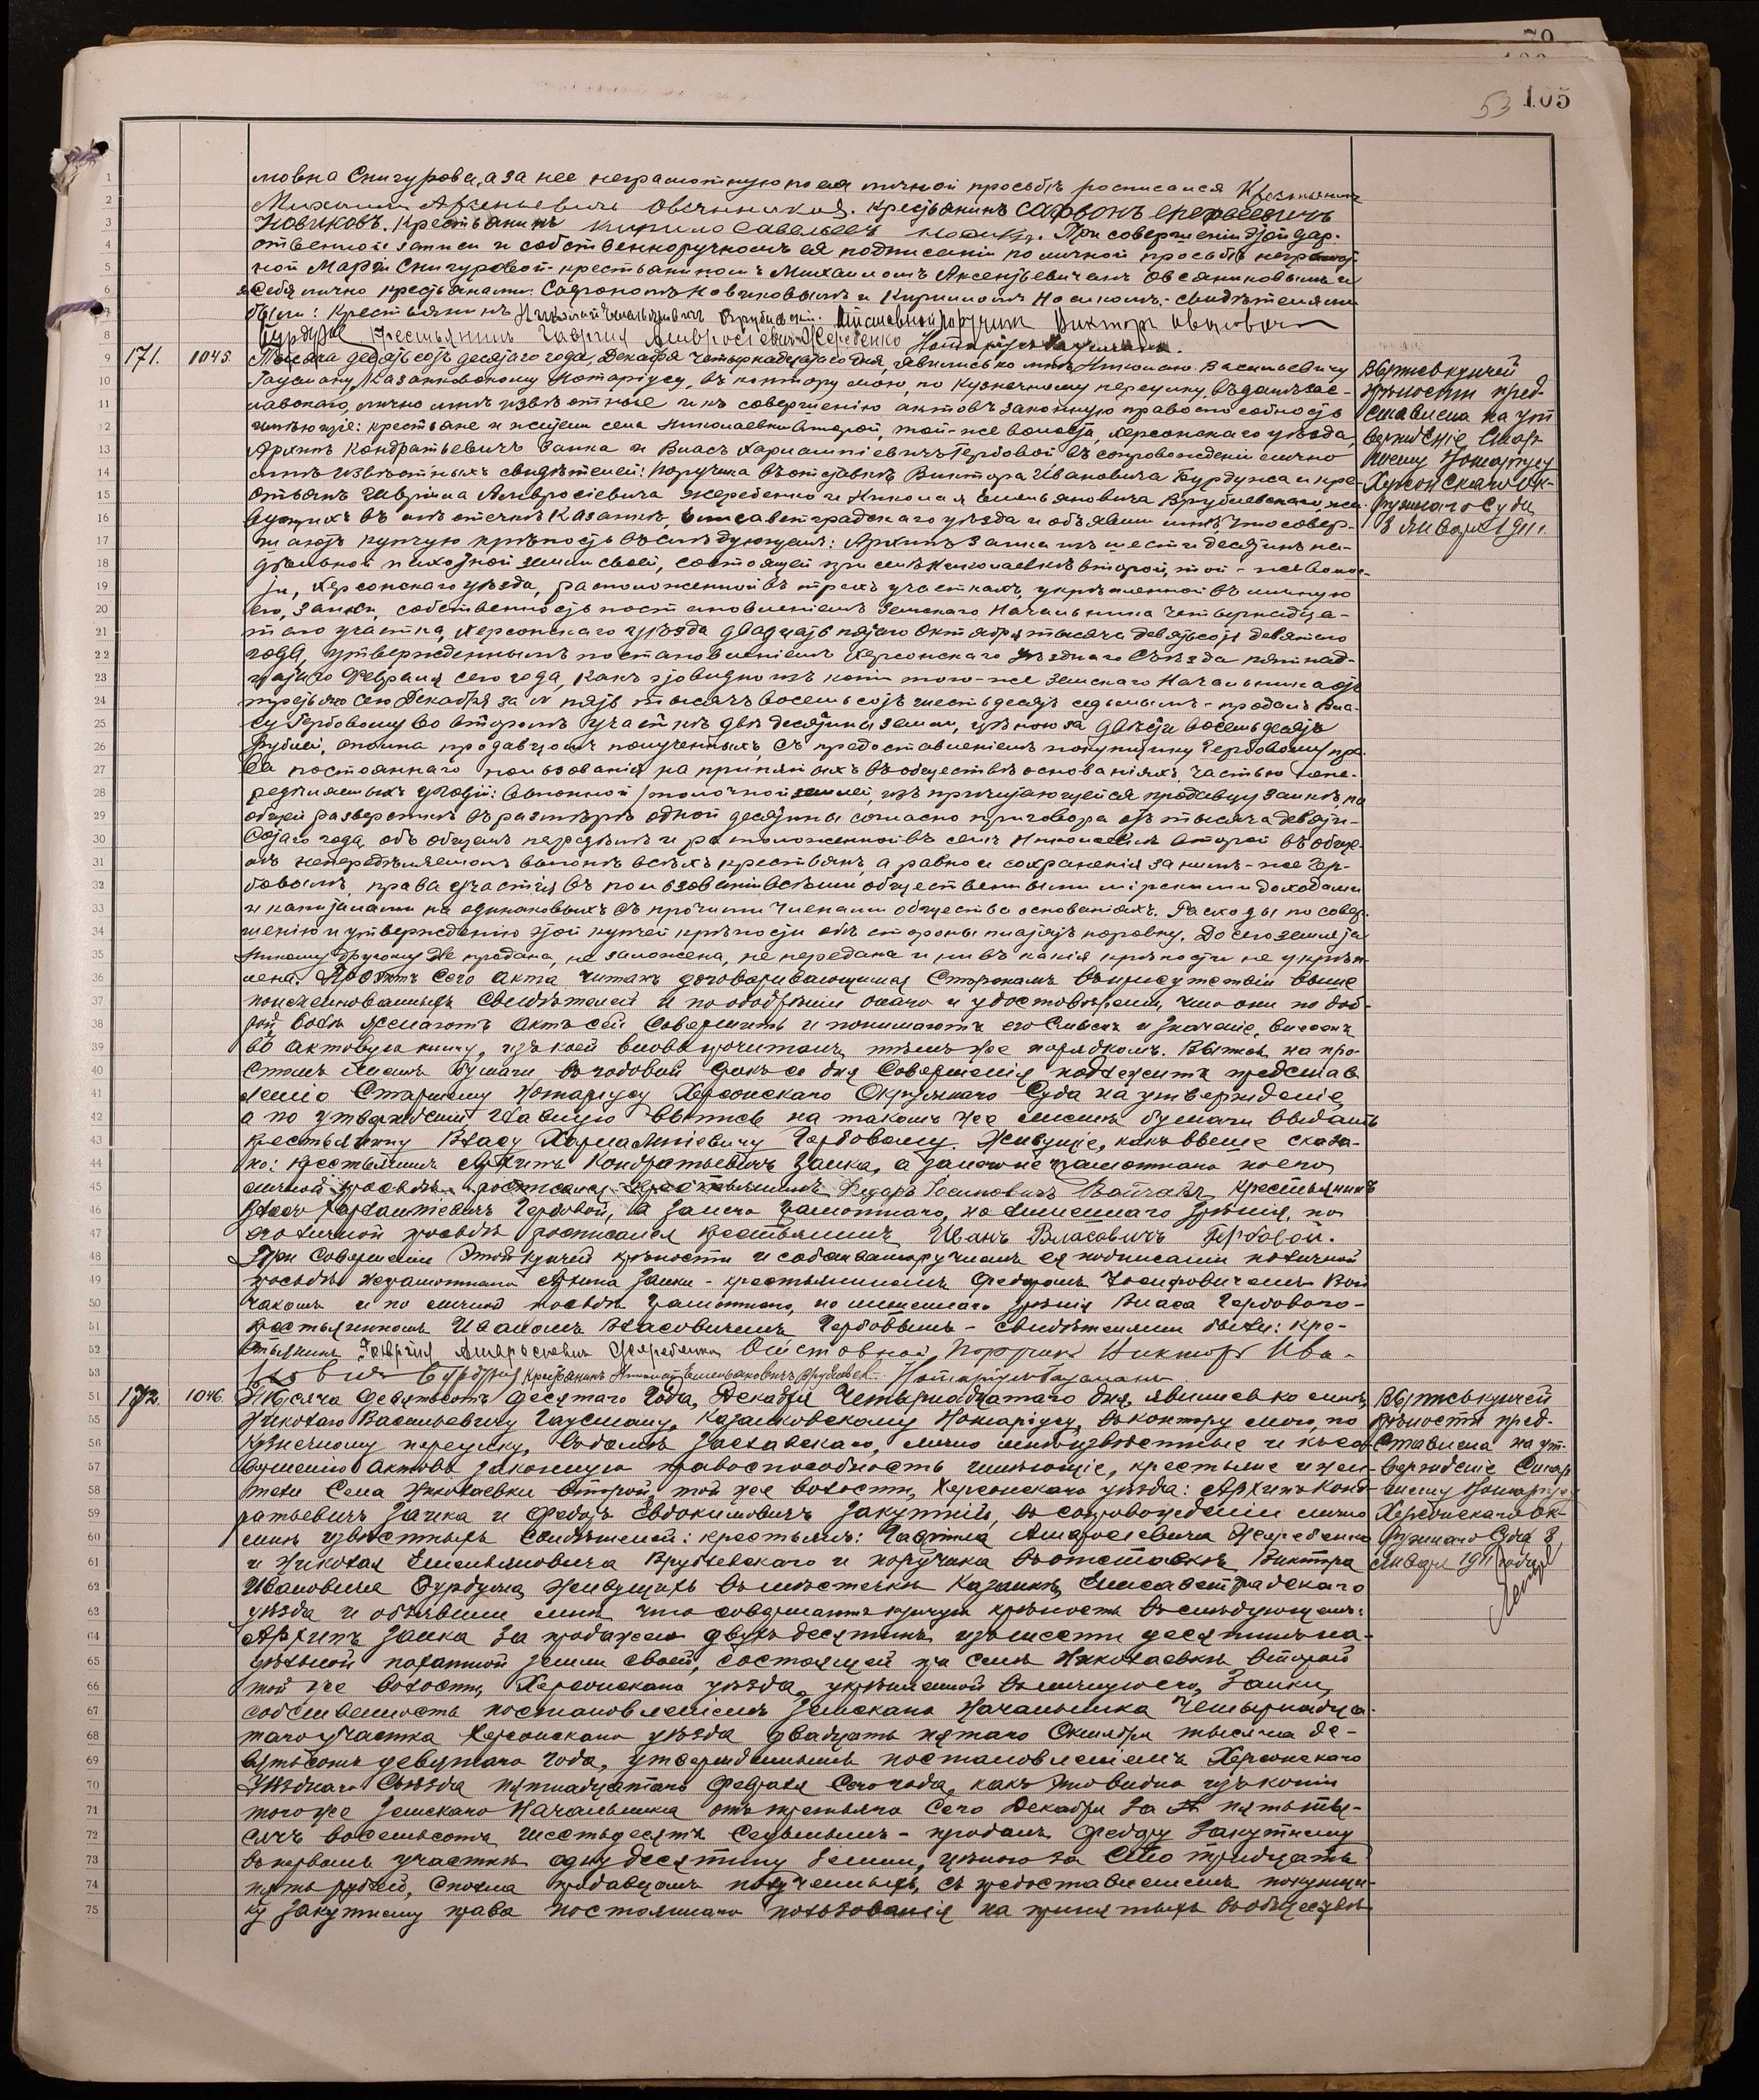 105
53
мовна Снигурова, а за нее неграмотную по ея личной просьбѣ росписался Крестьянинъ
Михаилъ Арсеньевичъ Овсянниковъ. Крестьянинъ Сафронъ
Новиковъ. Крестьянинъ Кирило Савельевъ Носикъ. При совершеніи этой дар-
ственной записи и собственноручномъ ея подписаніи по личной просьбѣ неграмот-
ной Маріи Снигуровой - крестьяниномъ Михаиломъ Аксентьевичемъ Овсяниковымъ и
за себя лично крестьянами: Сафрономъ Новиковымъ и Кириломъ Носикомъ, - свидѣтелями
были: крестьянинъ Николай Емельяновичъ Врублевскій. Отставной Поручикъ Викторъ Ивановичъ
Бурдуча Крестьянинъ Гавріилъ Амвросіевичъ Жеребенко Нотаріусъ Гаусманъ.
171. 1045. Тысяча девятьсотъ десятаго года, Декабря четырнадцатаго дня, явились ко мнѣ, Николаю Васильевичу
Гаусману, Казанковскому Нотаріусу, въ контору мою, по Кузнечному переулку, въ домѣ Зас-
лавскаго, лично мнѣ извѣстные и къ совершенію актовъ законную правоспособность
имѣющіе: крестьяне и жители села Николаевки Второй, той-же волости, Херсонскаго уѣзда,
Архипъ Кондратьевичъ Заика и Власъ Харлампіевичъ Гербовой въ сопровожденіи лично
мнѣ извѣстныхъ свидѣтелей: поручика въ отставкѣ Виктора Ивановича Бурдуча и кре-
стьянъ Гавріила Амвросіевича Жеребенко и Николая Емельяновича Врублевскаго, жи-
вущихъ въ мѣстечкѣ Казанкѣ, Елисаветградскаго уѣзда и объявили мнѣ что совер-
шаютъ купчую крѣпость въ слѣдующемъ: Архипъ Заика изъ шести десятинъ на-
дѣльной пахотной земли своей, состоящей при селѣ Николаевкѣ Второй, той-же волос-
ти, Херсонскаго уѣзда, расположенной въ трехъ участкахъ, укрѣпленной въ личную
его, Заики, собственность постановленіемъ Земскаго Начальника четырнадца-
таго участка, Херсонскаго уѣзда двадцать пятаго Октября тысяча девятьсотъ девятаго
года, утвержденнымъ постановленіемъ Херсонскаго Уѣзднаго Съѣзда пятнад-
цатаго Февраля сего года, какъ это видно изъ копіи того-же Земскаго Начальника отъ
третьяго сего Декабря за № пять тысячъ восемьсотъ шестьдесятъ седьмымъ - продалъ Вла-
су Гербовому во второмъ участкѣ двѣ десятины земли, цѣною за двѣсти восемьдесятъ
рублей, сполна продавцомъ полученныхъ, съ предоставленіемъ покупщику Гербовому пра-
ва постояннаго пользованія на принятыхъ въ обществѣ основаніяхъ, частью непе-
редѣляемыхъ угодій: выгонной, толочной землей, изъ причитающейся продавцу Заикѣ, по
общей разверсткѣ въ размѣрѣ одной десятины согласно приговора отъ тысяча девяти-
сотаго года, объ общемъ передѣлѣ и расположенной въ селѣ Николаевкѣ Второй въ обще-
мъ непередѣляемомъ выгонѣ всѣхъ крестьянъ, а равно и сохраненія за нимъ-же Гер-
бовымъ, права участія въ пользованіи всѣми общественными мірскими доходами
и капиталами на одинаковыхъ съ прочими членами общества основаніяхъ. Расходы по совер-
шенію и утвержденію этой купчей крѣпости обѣ стороны платятъ поровну. До сего земля та
никому другому не продана, не заложена, не передана и ни въ какія крѣпости не укрѣп-
лена. Проектъ сего акта читанъ договаривающимся сторонамъ въ присутствіи выше
поименованныхъ свидѣтелей и по одобреніи онаго и удостовѣреніи, что они по доб-
рой волѣ желаютъ актъ сей совершить и понимаютъ его смыслъ и значеніе, внесенъ
въ актовую книгу, изъ коей вновь прочитанъ тѣмъ же порядкомъ. Выпись на про-
стомъ листѣ бумаги въ годовой срокъ со дня совершенія подлежитъ представ
ленію Старшему Нотаріусу Херсонскаго Окружнаго Суда на утвержденіе
а по утвержденіи главную выпись на такомъ же листѣ бумаги выдать
крестьянину Власу Харлампіевичу Гербовому. Живущіе, какъ выше сказа-
но: крестьянинъ Архипъ Кондратьевичъ Заика, а за него неграмотнаго по его
личной просьбѣ росписался крестьянинъ Федоръ Іосиповичъ Войчакъ. крестьянинъ
Власъ Харлампіевичъ Гербовой, а за него грамотнаго, но лишеннаго зрѣнія, по
его личной просьбѣ росписался крестьянинъ Иванъ Власовичъ Гербовой.
При совершеніи этой купчей крѣпости и собственноручномъ ея подписаніи по личной
просьбѣ неграмотнаго Архипа Заики - крестьяниномъ Федоромъ Іосифовичемъ Вой
чакомъ и по личной просьбѣ грамотнаго, но лишеннаго зрѣнія Власа Гербового -
крестьяниномъ Иваномъ Власовичемъ Гербовымъ - свидѣтелями были: кре-
стьянинъ Гавріилъ Амвросіевичъ Жеребенко Отставной Поручикъ Викторъ Ива-
новичъ Бурдуча Крестьянинъ Николай Емельяновичъ Врублевскій. Нотаріусъ Гаусманъ
Выпись купчей
крѣпости пред-
ставлена на утв
ержденіе Стар
шему Нотаріусу
Херсонскаго Ок-
ружнаго Суда
3 Января 1911.
172. 1046. Тысяча девятьсотъ десятаго года, Декабря Четырнадцатаго дня, явились ко мнѣ,
Николаю Васильевичу Гаусману, Казанковскому Нотаріусу, въ контору мою, по
Кузнечному переулку, въ домѣ Заславскаго, лично мнѣ извѣстные и къ со-
вершенію актовъ законную правоспособность имѣющіе, крестьяне и жи-
тели Села Николаевки Второй, той же волости, Херсонскаго уѣзда: Архипъ Конд-
ратьевичъ Заика и Федоръ Евдокимовичъ Закутній, въ сопровожденіи лично
мнѣ извѣстныхъ свидѣтелей: крестьянъ: Гавріила Амвросіевича Жеребенко
и Николая Емельяновича Врублевскаго и поручика въ отставкѣ Виктора
Ивановича Бурдуча, живущихъ въ мѣстечкѣ Казанкѣ, Елисаветградскаго
уѣзда и объявили мнѣ что совершаютъ купчую крѣпость въ слѣдующемъ:
Архипъ Заика за продажею двухъ десятинъ изъ шести десятинъ на-
дѣльной пахатной земли своей, состоящей при селѣ Николаевкѣ Второй
той же волости, Херсонскаго уѣзда, укрѣпленной въ личную его, Заики,
собственность постановленіемъ Земскаго Начальника Четырнадца-
таго участка Херсонскаго уѣзда двадцать пятаго Октября тысяча де-
вятьсотъ девятаго года, утвержденнымъ постановленіемъ Херсонскаго
Уѣзднаго Съѣзда пятнадцатаго Февраля сего года, какъ это видно изъ копіи
того же Земскаго Начальника отъ третьяго сего Декабря за № пять ты-
сячъ восемьсотъ шестьдесятъ седьмымъ - продалъ Федору Закутнему
въ первомъ участкѣ одну десятину земли, цѣною за сто тридцать
пять рублей, сполна продавцомъ полученныхъ, съ предоставленіемъ покупщи-
ку Закутнему права постояннаго пользованія на принятыхъ въ обществѣ
Выпись купчей
крѣпости пред-
ставлена на ут-
вержденіе Стар
шему Нотаріусу
Херсонскаго Ок-
ружнаго Суда 3
Января 1911 года